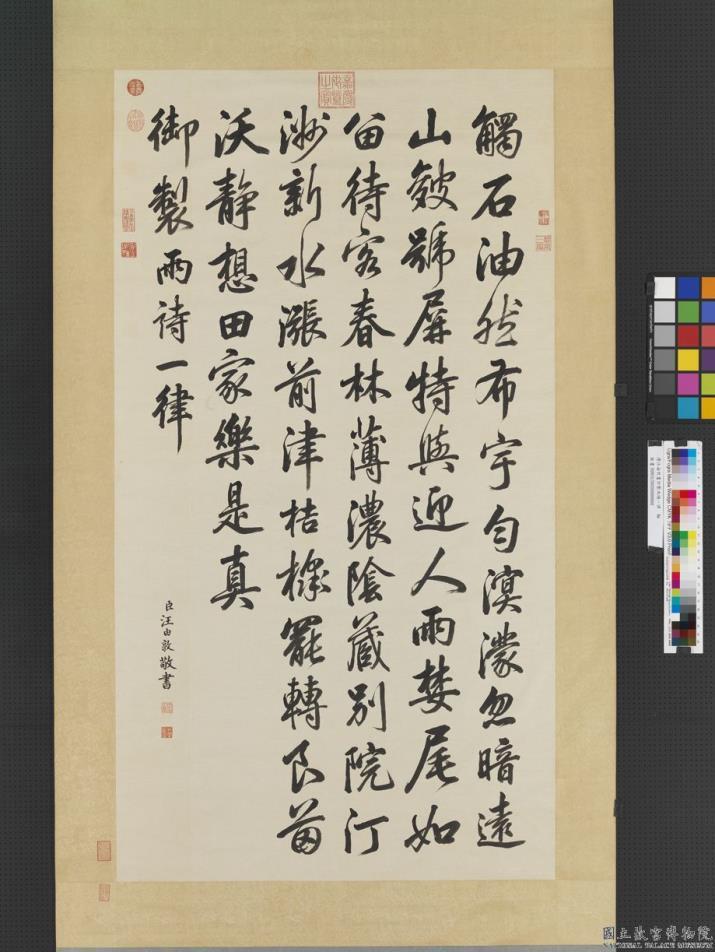 觸石油然布宇勻溟濛忽暗遠
山皴號屏特與迎人雨婪尾如
留待客春林薄濃陰藏別院汀
洲新水漲前津桔槔罷轉良苗
沃靜想田家樂是真
御製雨詩一律
臣汪由敦敬書
嘉慶御覽之寶
國立故宮博物院
NATIONAL PALACE MUSEUM